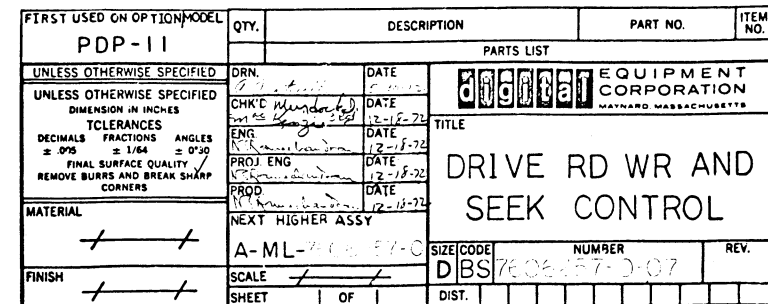 FIRST USED ON OPTION/MODEL
PDP-11
QTY. DESCRIPTION PART NO. ITEM NO.
PARTS LIST
UNLESS OTHERWISE SPECIFIED
UNLESS OTHERWISE SPECIFIED
DIMENSION IN INCHES
TOLERANCES
DECIMALS FRACTIONS ANGLES
± .005 ± 1/64 ± 0°30
FINAL SURFACE QUALITY
REMOVE BURRS AND BREAK SHARP
CORNERS
MATERIAL
FINISH
DRN. DATE
CHK'D DATE
12-18-72
ENG. DATE
12-18-72
PROJ. ENG DATE
12-18-72
PROD. DATE
12-18-72
NEXT HIGHER ASSY
A-ML-
SCALE
SHEET OF
digital EQUIPMENT
CORPORATION
MAYNARD, MASSACHUSETTS
TITLE
DRIVE RD WR AND
SEEK CONTROL
SIZE CODE NUMBER REV.
D BS
DIST.